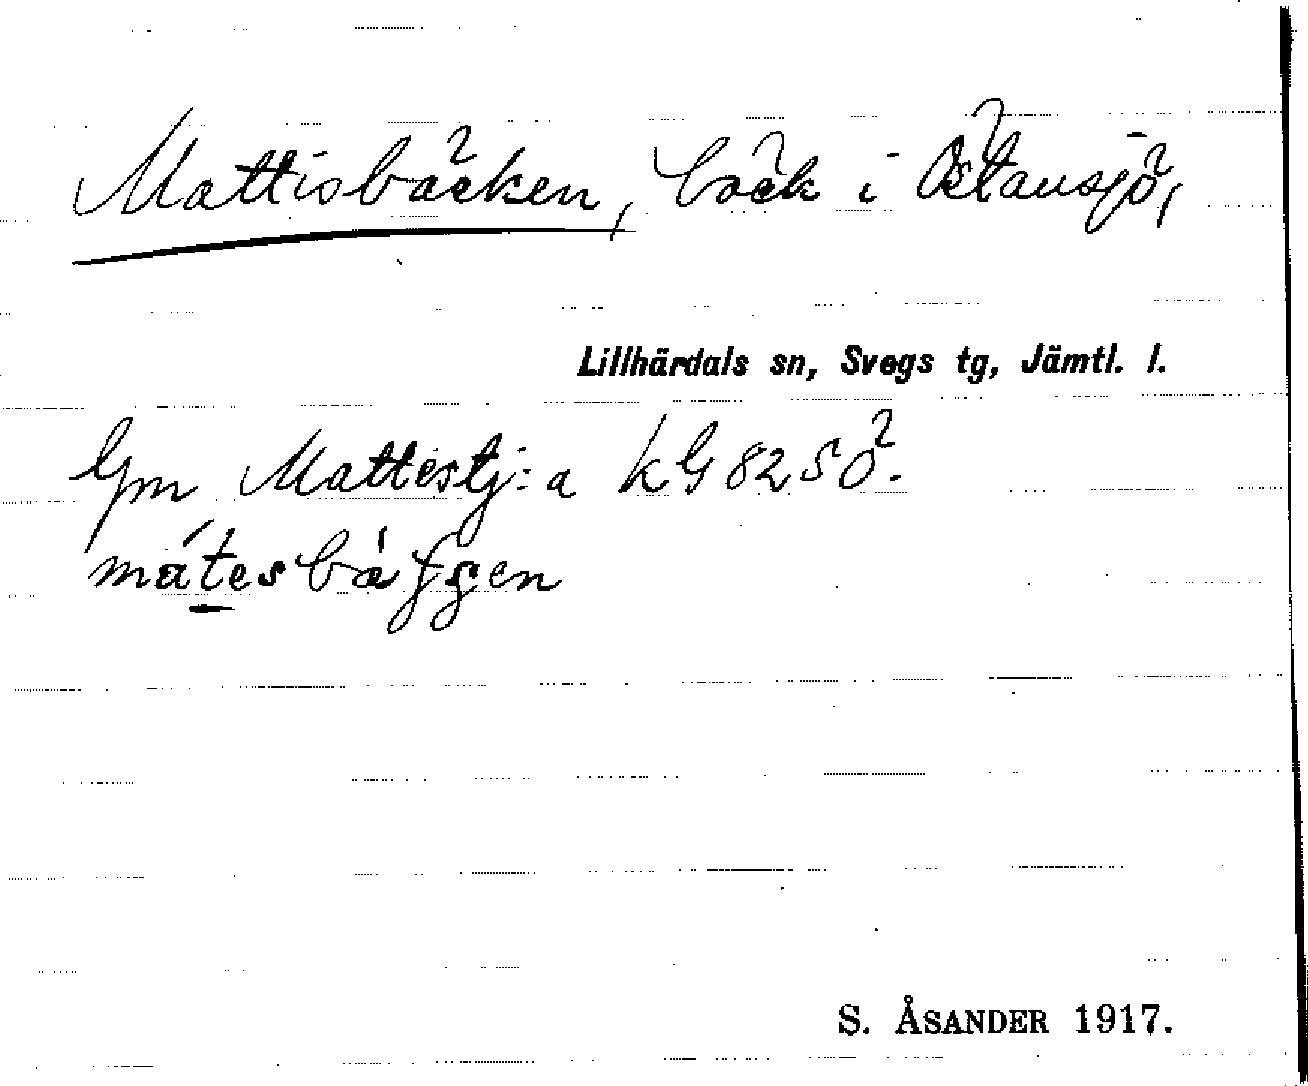 Mattisbäcken, bäck i Östansjö,
Lillhärdals sn, Svegs tg, Jämtl. l.
Gm Mattestj:a kG 82 S Ö.
S. ÅSANDER 1917.